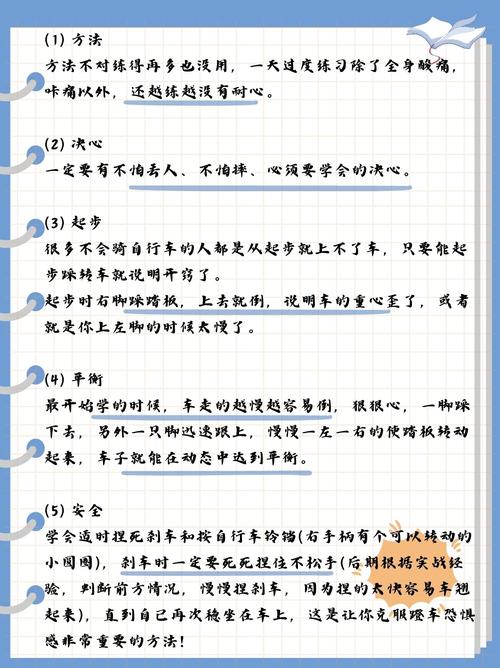 (1) 方法
方法不对练得再多也没用，一天过度练习除了全身酸痛，
咔痛以外，还越练越没有耐心。
(2) 决心
一定要有不怕丢人、不怕摔、心须要学会的决心。
(3) 起步
很多不会骑自行车的人都是从起步就上不了车，只要能起
步踩转车就说明开窍了。
起步时右脚踩踏板，上去就倒，说明车的重心歪了，或者
就是你上左脚的时候太慢了。
(4) 平衡
最开始学的时候，车走的越慢越容易倒，狠狠心，一脚踩
下去，另外一只脚迅速跟上，慢慢一左一右的使踏板转动
起来，车子就能在动态中达到平衡。
(5) 安全
学会适时捏死刹车和按自行车铃铛(右手柄有个可以转动的
小圆圈)，刹车时一定要死死捏住不松手(后期根据实战经
验，判断前方情况，慢慢捏刹车，因为捏的太快容易车翘
起来)，直到自己再次稳坐在车上，这是让你克服蹬车恐惧
感非常重要的方法!